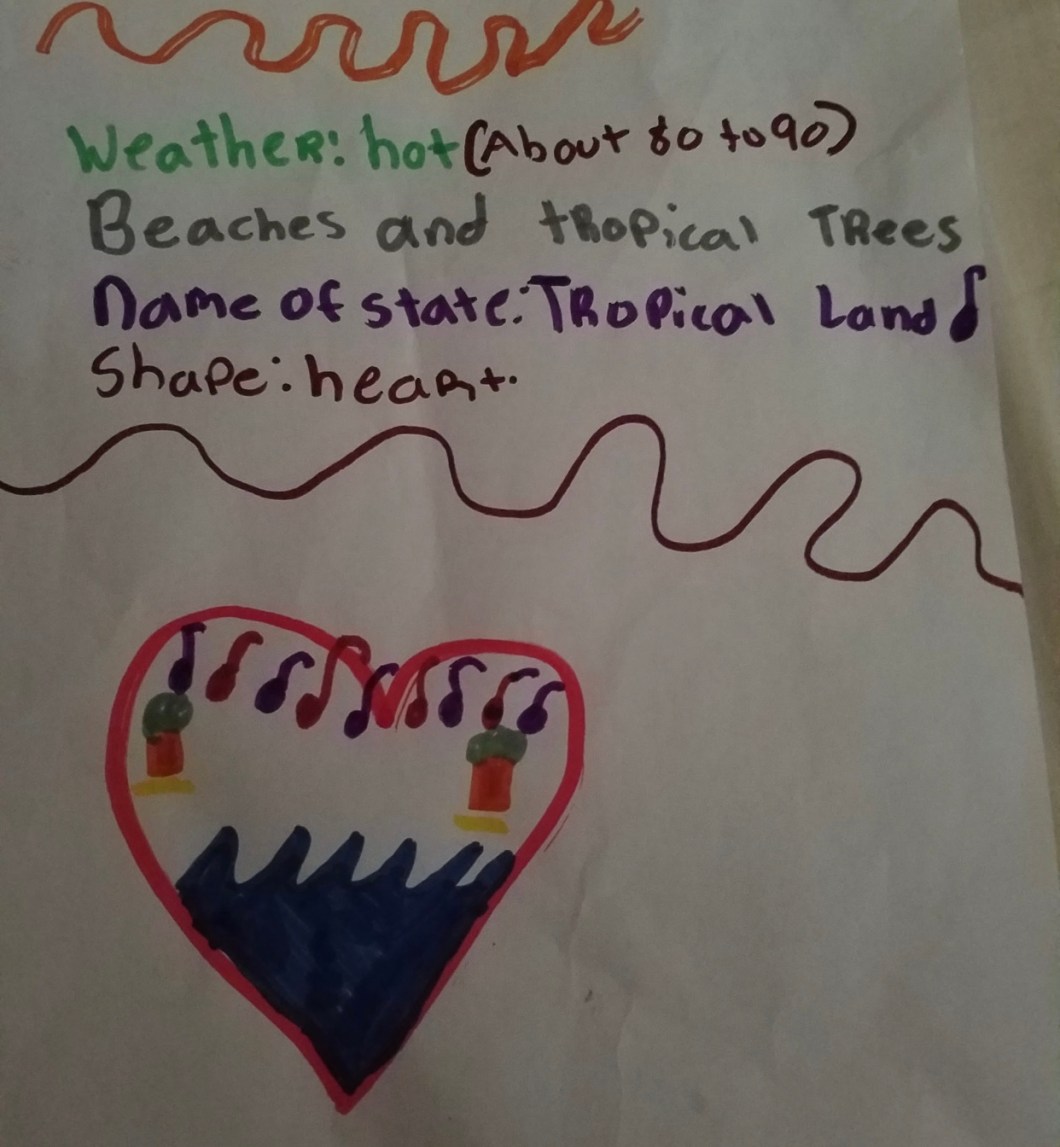 Weather: hot (About 80 to 90)
Beaches and tropical Trees
Name of state: Tropical Land
Shape: heart.